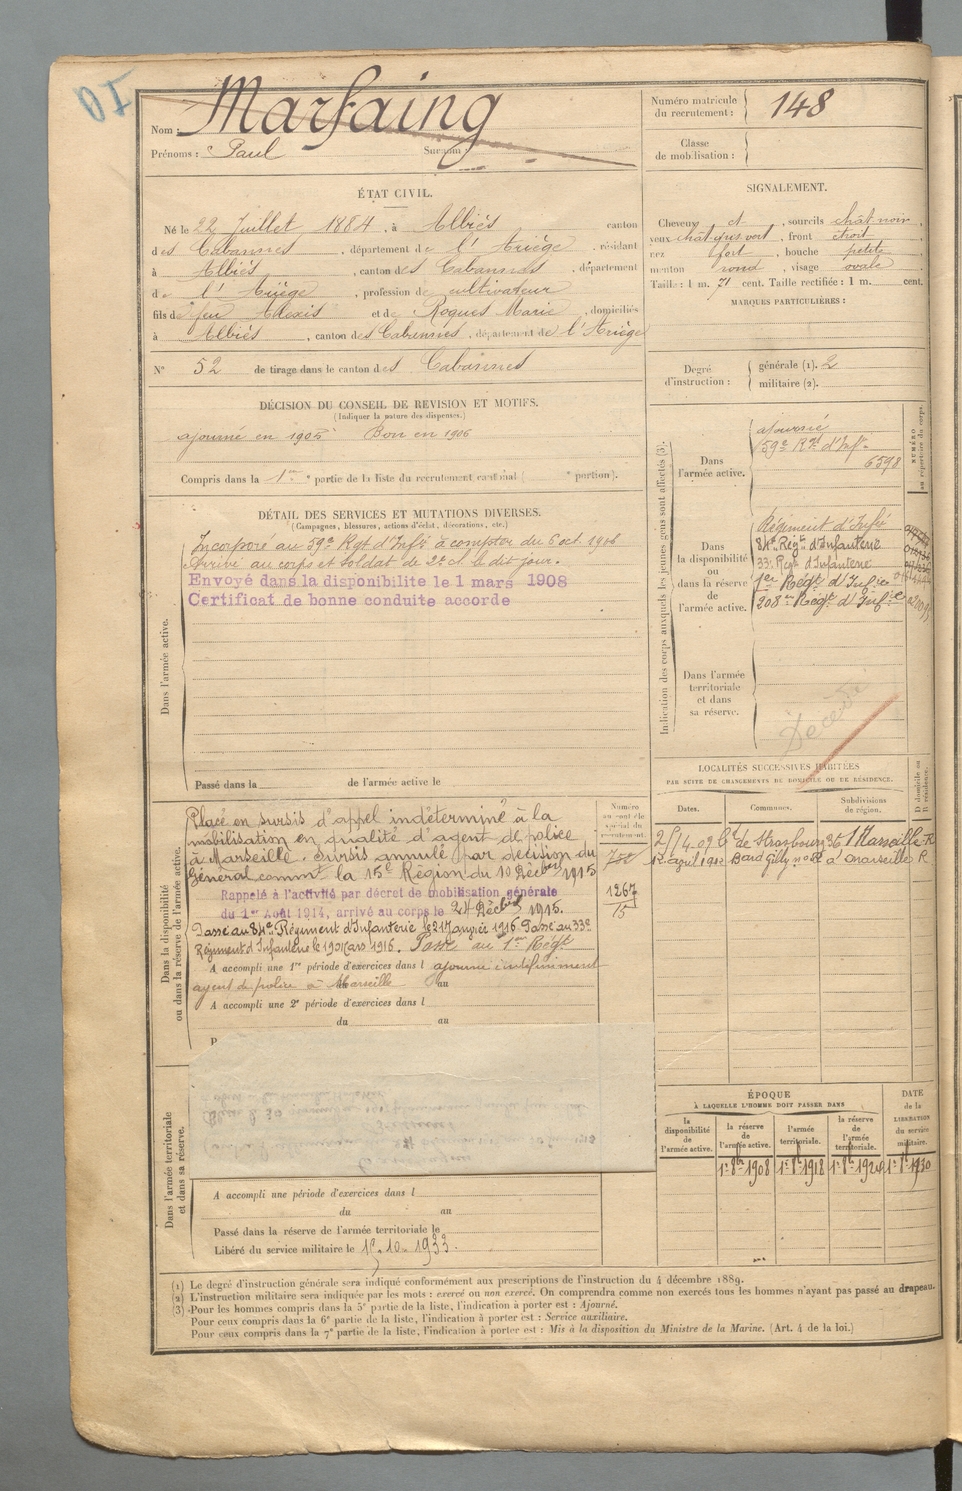 Nom : Marfaing
Prénoms : Paul Surnom :
Numéro matricule du recrutement : 148
Classe de mobilisation :
ÉTAT CIVIL.
Né le 22 Juillet 1884, à Albiès canton
des Cabannes, département de l'Ariège, résidant
à Albiès, canton des Cabannes, département
de l'Ariège, profession de cultivateur
fils de feu Alexis et de Roques Marie, domiciliés
à Albiès, canton des Cabannes, département de l'Ariège
N° 52 de tirage dans le canton des Cabannes
DÉCISION DU CONSEIL DE REVISION ET MOTIFS.
(Indiquer la nature des dispenses.)
ajourné en 1905 Bon en 1906
Compris dans la 1re partie de la liste du recrutement cantonal ( portion).
DÉTAIL DES SERVICES ET MUTATIONS DIVERSES.
(Campagnes, blessures, actions d'éclat, décorations, etc.)
Dans l'armée active.
Incorporé au 59e Rgt d'Infie à compter du 6 oct. 1906
Arrivé au corps et soldat de 2e cl. le dit jour.
Envoyé dans la disponibilite le 1 mars 1908
Certificat de bonne conduite accorde
Passé dans la de l'armée active le
Dans la disponibilité
ou dans la réserve de l'armée active.
Placé en sursis d'appel indéterminé à la
mobilisation en qualité d'agent de police
à Marseille. Sursis annulé par décision du
Général commt la 15e Région du 10 Décbre 1915
Rappelé à l'activité par décret de mobilisation générale
du 1er Août 1914, arrivé au corps le 24 Décbre 1915.
Passé au 84e Régiment d'Infanterie le 21 Janvier 1916. Passé au 33e
Régiment d'Infanterie le 19 Mars 1916. Passé au 1er Régt
A accompli une 1re période d'exercices dans l ajourné indéfiniment
agent de police à Marseille du au
A accompli une 2e période d'exercices dans l
du au
1267
15
Dans l'armée territoriale
et dans sa réserve.
A accompli une période d'exercices dans l
du au
Passé dans la réserve de l'armée territoriale le
Libéré du service militaire le 1er. 10. 1933.
SIGNALEMENT.
Cheveux et, sourcils chât-noir,
yeux chât-gris vert, front étroit,
nez fort, bouche petite,
menton rond, visage ovale.
Taille : 1 m. 71 cent. Taille rectifiée : 1 m. cent.
MARQUES PARTICULIÈRES :
Degré d'instruction : générale (1). 2
militaire (2).
Indication des corps auxquels les jeunes gens sont affectés (3).
NUMÉRO au répertoire du corps.
Dans l'armée active.
ajourné
59e Rgt d'Infie
6598
Dans la disponibilité ou dans la réserve de l'armée active.
Régiment d'Infie
84e Régt d'Infanterie
33e Regt d'Infanterie
1er Régt d'Infie
208me Régt d'Infie
Dans l'armée territoriale et dans sa réserve.
Décédé
LOCALITÉS SUCCESSIVES HABITÉES
PAR SUITE DE CHANGEMENTS DE DOMICILE OU DE RÉSIDENCE.
Dates. Communes. Subdivisions de région. D domicile ou R résidence.
25/4-09 Bd de Strasbourg 36 Marseille R
12 avril 1912 Bard Gilly à Marseille R
ÉPOQUE
À LAQUELLE L'HOMME DOIT PASSER DANS
DATE de la LIBÉRATION du service militaire.
la disponibilité de l'armée active. la réserve de l'armée active. l'armée territoriale. la réserve de l'armée territoriale.
1er 8bre 1908 1er 8bre 1918 1er 8bre 1924 1er 8bre 1930
(1) Le degré d'instruction générale sera indiqué conformément aux prescriptions de l'instruction du 4 décembre 1889.
(2) L'instruction militaire sera indiquée par les mots : exercé ou non exercé. On comprendra comme non exercés tous les hommes n'ayant pas passé au drapeau.
(3) Pour les hommes compris dans la 5e partie de la liste, l'indication à porter est : Ajourné.
Pour ceux compris dans la 6e partie de la liste, l'indication à porter est : Service auxiliaire.
Pour ceux compris dans la 7e partie de la liste, l'indication à porter est : Mis à la disposition du Ministre de la Marine. (Art. 4 de la loi.)